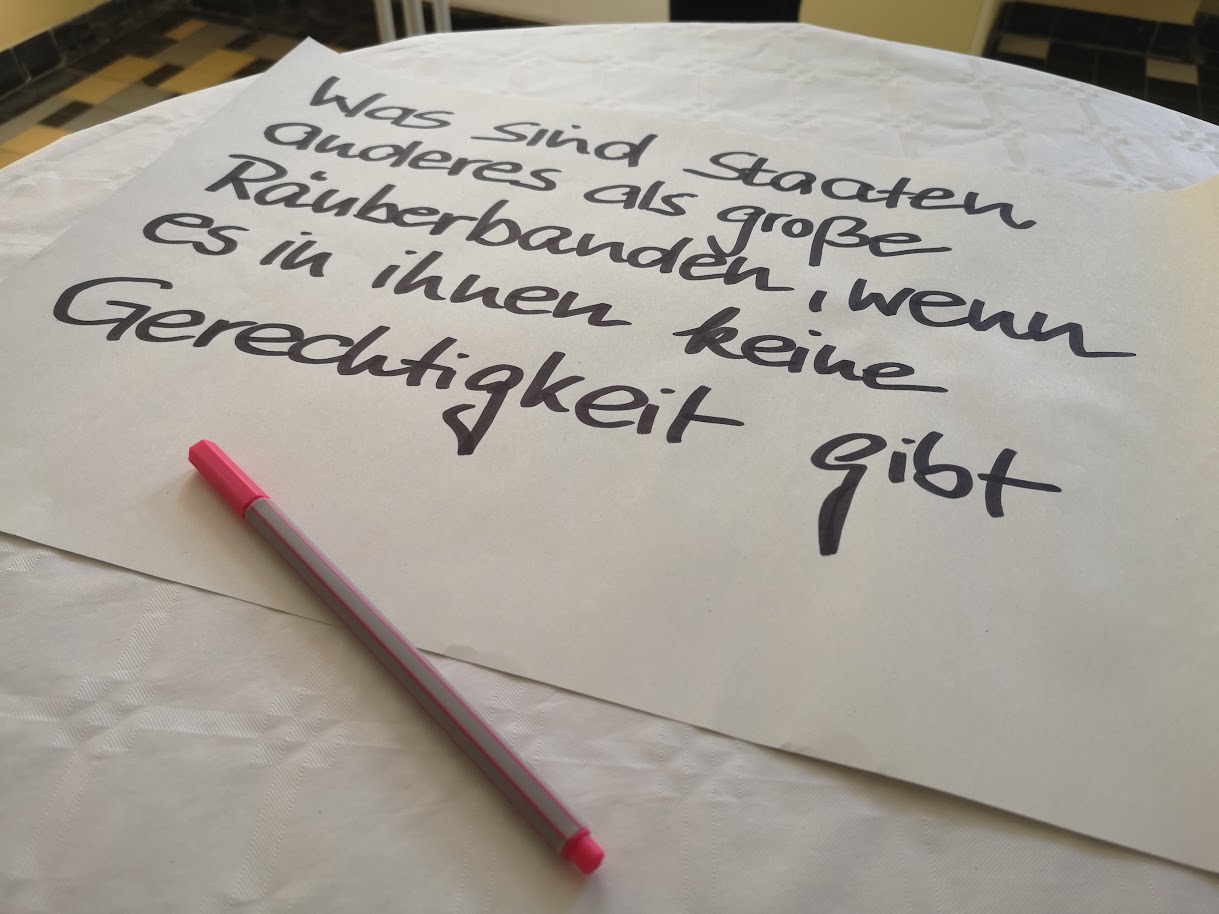 Was sind Staaten
anderes als große
Räuberbanden, wenn
es in ihnen keine
Gerechtigkeit gibt